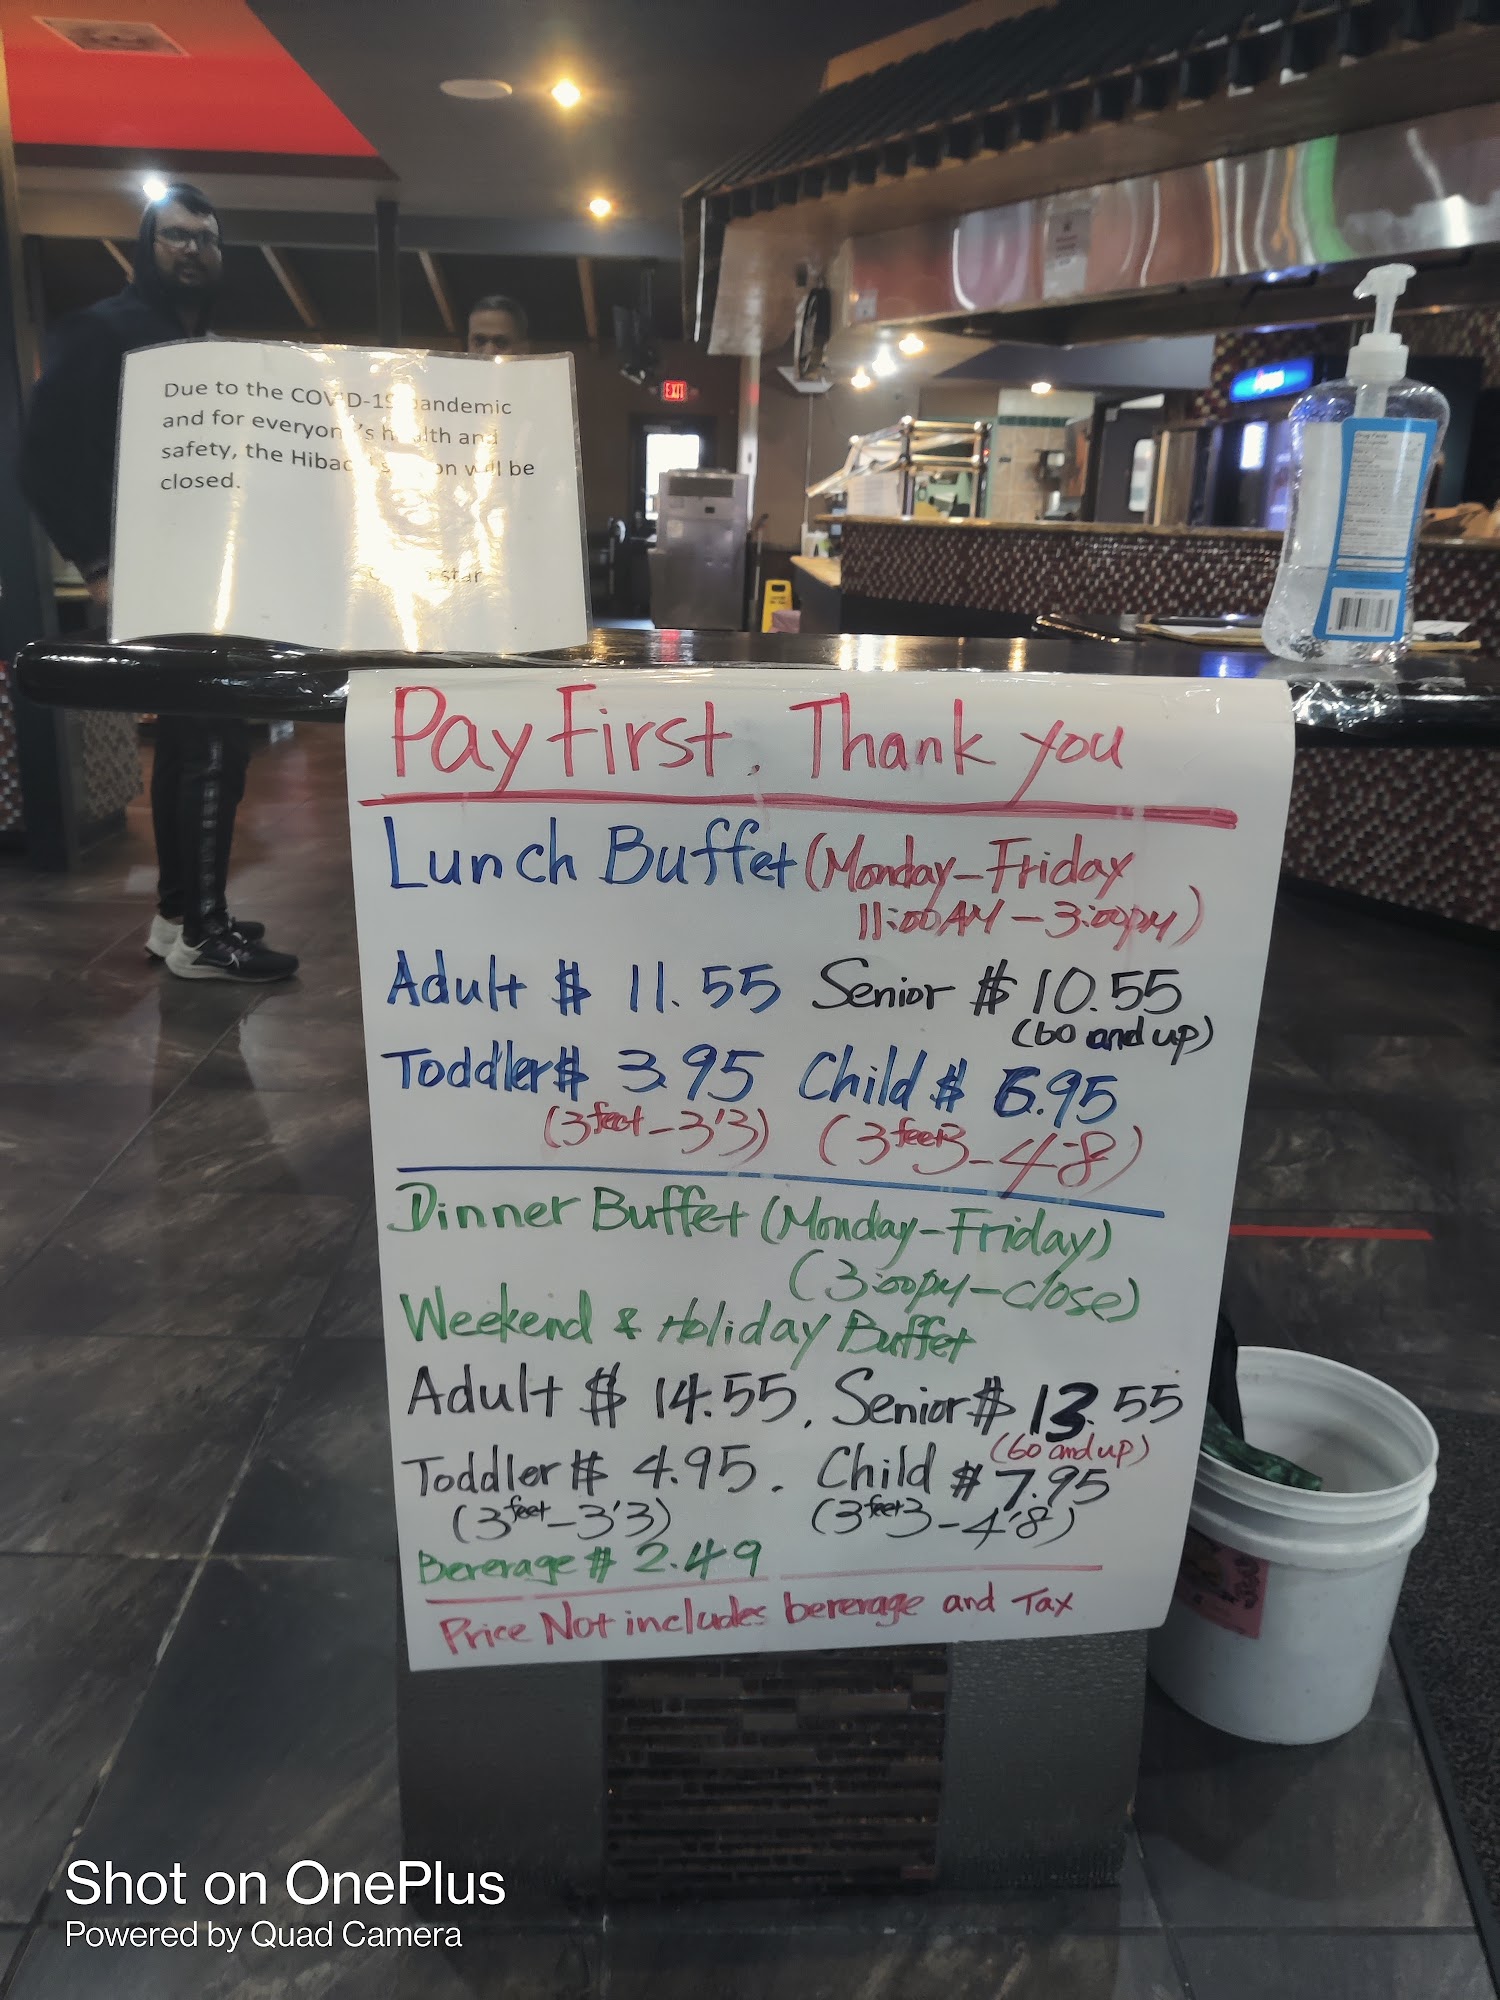 Due to the COVID-19 pandemic
and for everyone's health and
safety, the Hibachi station will be
closed.
EXIT
Drug Facts
Pay First. Thank you
Lunch Buffet (Monday-Friday
11:00AM - 3:00pm)
Adult $ 11.55 Senior $ 10.55
(60 and up)
Toddler $ 3.95 Child $ 6.95
(3feet-3'3) (3feet3-4'8)
Dinner Buffet (Monday-Friday)
(3:00pm-close)
Weekend & Holiday Buffet
Adult $ 14.55. Senior $ 13.55
(60 and up)
Toddler $ 4.95. Child $ 7.95
(3feet-3'3) (3feet3-4'8)
Bererage $ 2.49
Price Not includes bererage and Tax
Shot on OnePlus
Powered by Quad Camera